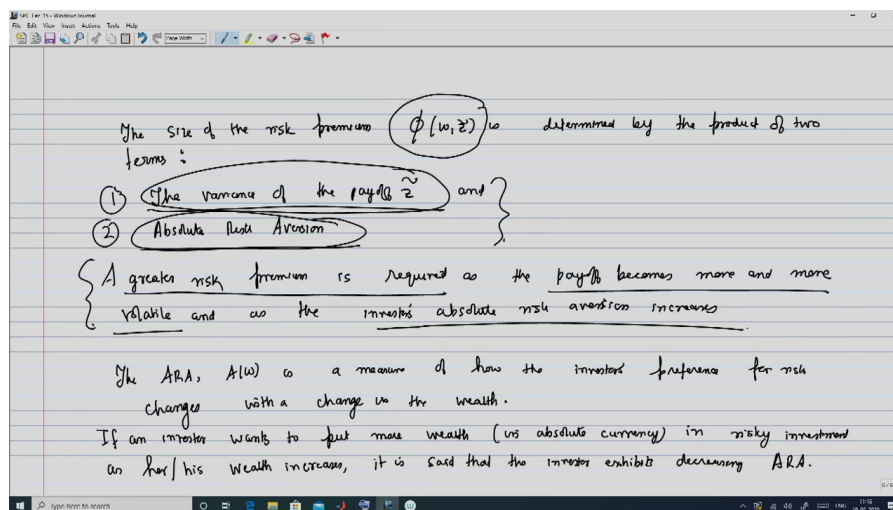 SPC Lec 15 - Windows Journal
File Edit View Insert Actions Tools Help
Page Width
The size of the risk premium ϕ(w,z̃) is determined by the product of two
terms :
① The variance of the payoff z̃ and
② Absolute Risk Aversion
A greater risk premium is required as the payoff becomes more and more
volatile and as the investor's absolute risk aversion increases
The ARA, A(w) is a measure of how the investor's preference for risk
changes with a change in the wealth.
If an investor wants to put more wealth (in absolute currency) in risky investment
as her/his wealth increases, it is said that the investor exhibits decreasing ARA.
6/6
Type here to search
ENG
11:16